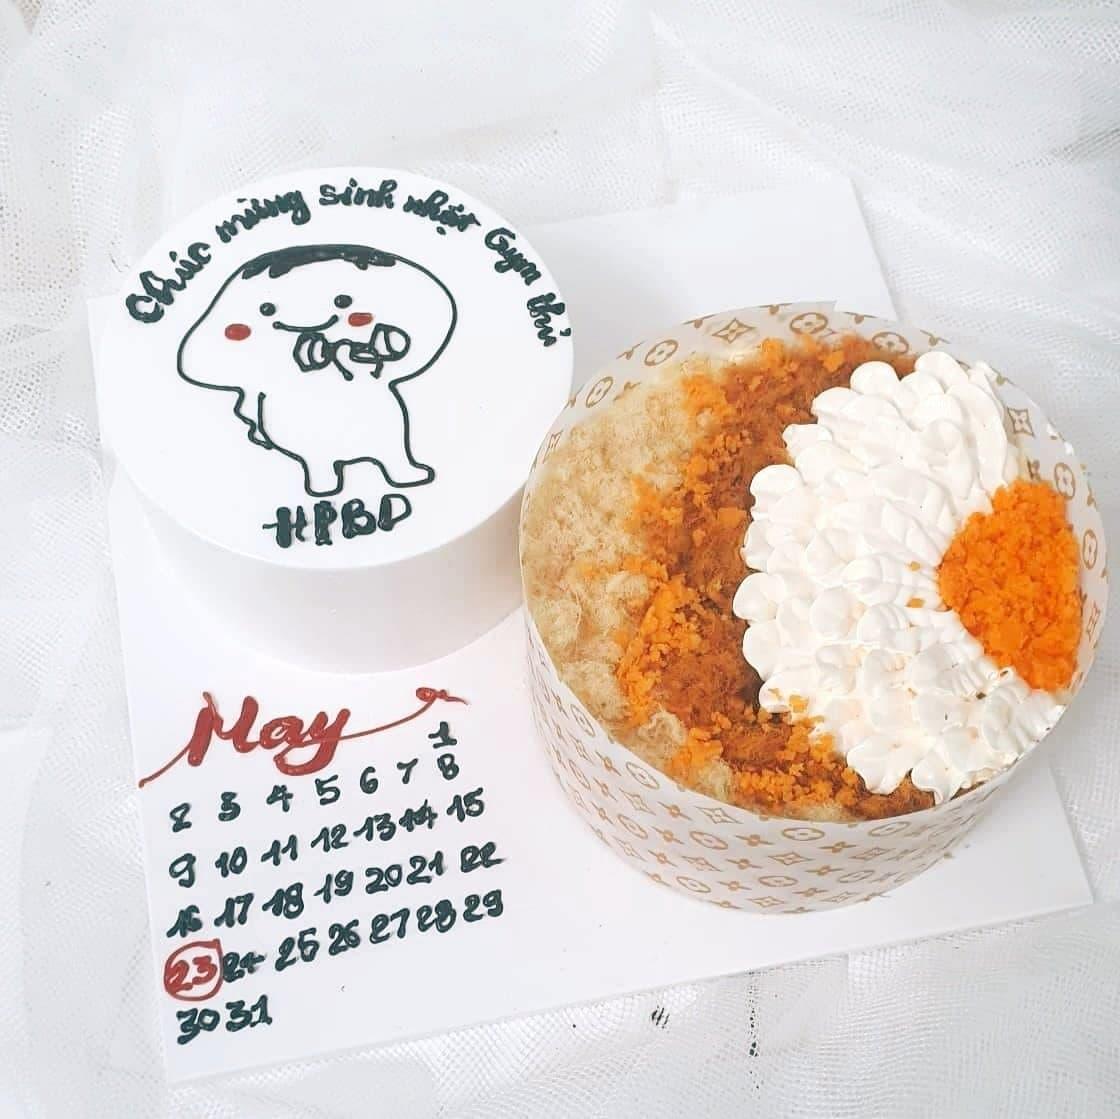 Chúc mừng sinh nhật Gym thủ
HPBD
May
1
2 3 4 5 6 7 8
9 10 11 12 13 14 15
16 17 18 19 20 21 22
23 24 25 26 27 28 29
30 31